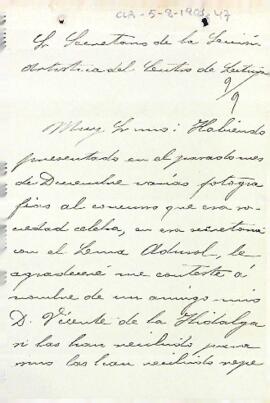 Sr Secretario de la Sección
Artistica del Centro de Lectura
9/9
Muy Sr mio: Habiendo
presentado en el
de Diciembre varias fotogra
fias al concurso que esa so-
ciedad celebra, en esa secretaria
con el Lema Adurol, le
agradeceré me conteste á
nombre de un amigo mio
D. Vicente de la Hidalga
si las han recibido, pues
mio las han recibido repe